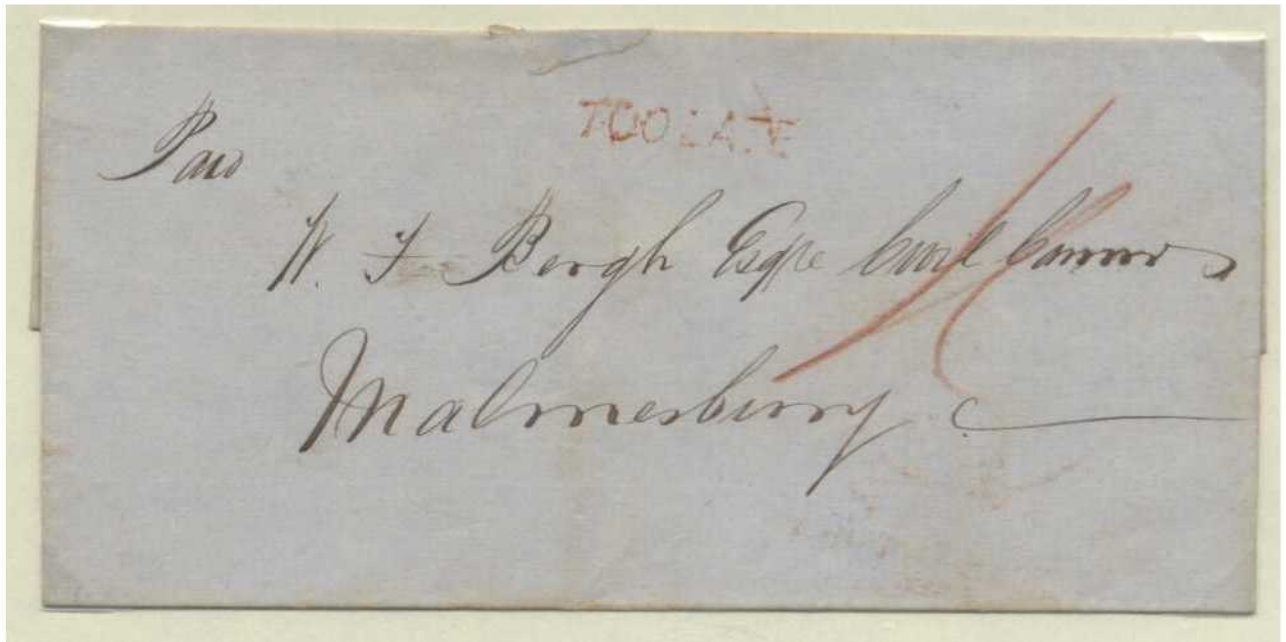 TOO LATE
Paid
W. F. Bergh Esqre Civil Commr
Malmesbury